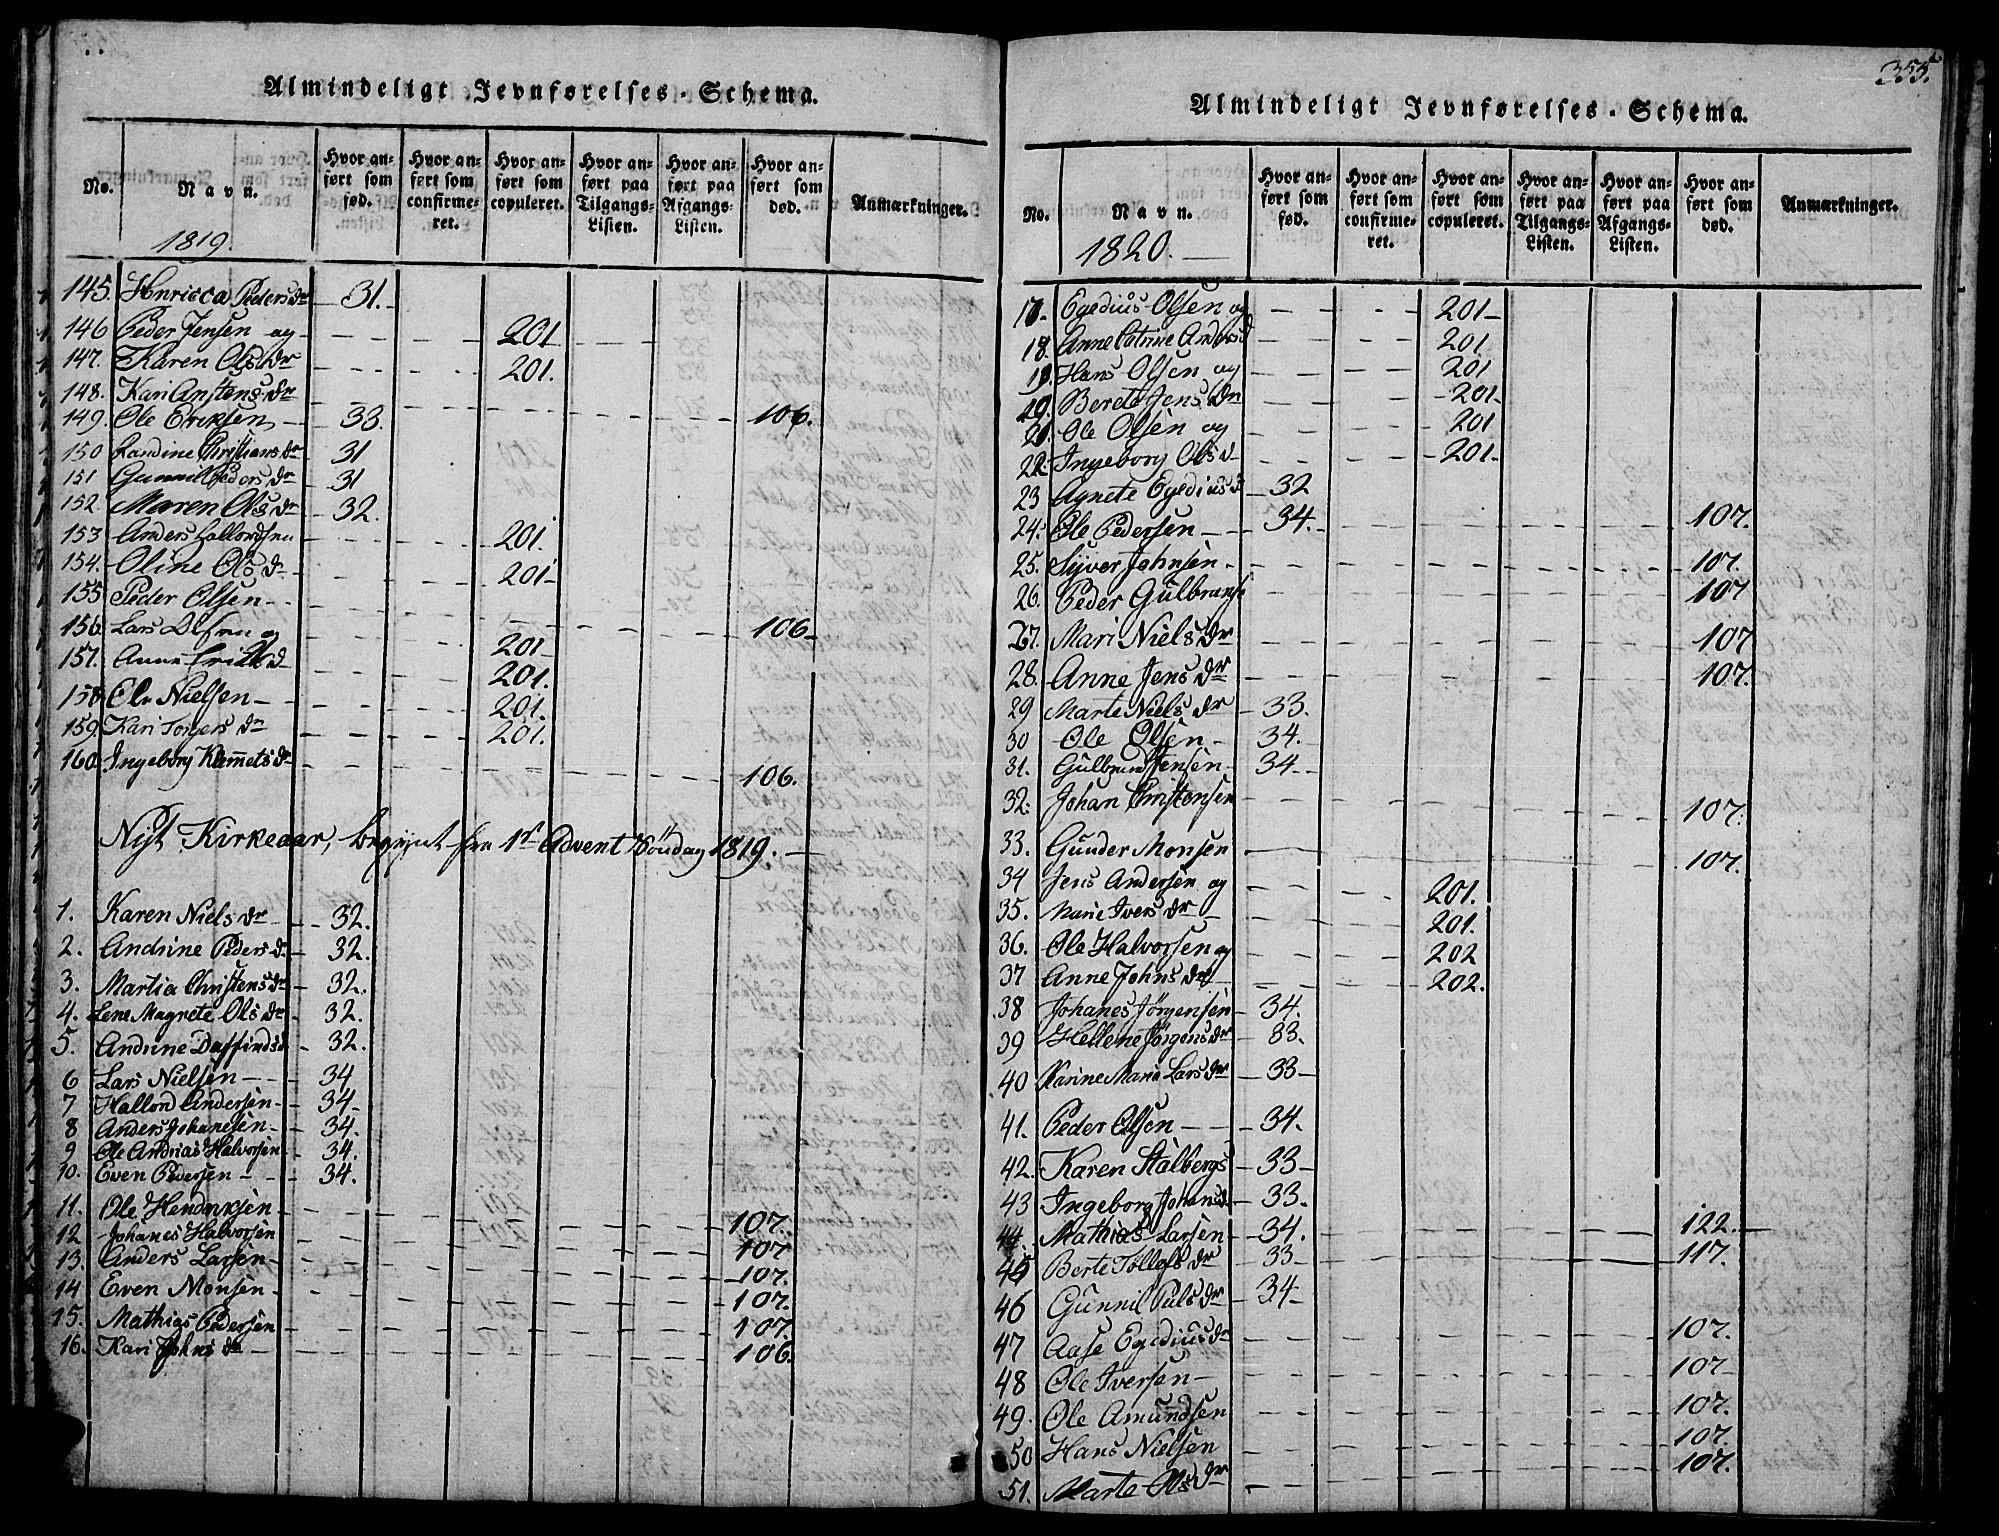 Almindeligt Jevnførelses-Schema.
No. Navn. Hvor anført som fød. Hvor anført som confirmeret. Hvor anført som copuleret. Hvor anført paa Tilgangs-Listen. Hvor anført paa Afgangs-Listen. Hvor anført som død. Anmærkninger.
1819.
145. Henricca Peders dr 31.
146 Peder Jensen og 201
147. Karen Ols dr 201.
148. Kari Anstens dr 106.
149. Ole Eriksen 33.
150 Christians dr 31
151 Gunnil Peders dr 31
152. Maren Ols dr 32.
153 Anders Hallordsen 201.
154. Oline Ols d 201
155 Peder Olsen 106
156. Lars Olsen og 201
157. Anne d 201.
158 Ole Nielsen 201.
159. Kari Torgers dr 201.
160 Ingeborg Klemets dr 106.
Nyt Kirkeaar, begynt fra 1st Advent Söndag 1819.
1. Karen Niels dr 32.
2. Andrine Peders d. 32.
3. Martia Christens dr 32.
4. Lene Magrete Ols dr 32.
5. Andrine Daffinds d 32.
6 Lars Nielsen 34
7 Hallord Andersen 34
8 Anders Johanesen 34.
9 Ole Andrias Halvorsen 34.
10. Even Pedersen 34.
11. Ole Hendriksen 107.
12 Johanes Halvorsen 107
13. Anders Larsen 107.
14 Even Monsen 107.
15. Mathias Pedersen 107.
16. Kari Johns dr 106.
355.
Almindeligt Jevnførelses-Schema.
No. Navn. Hvor anført som fød. Hvor anført som confirmeret. Hvor anført som copuleret. Hvor anført paa Tilgangs-Listen. Hvor anført paa Afgangs-Listen. Hvor anført som død. Anmærkninger.
1820.
17. Egedius Olsen og 201
18. Anne Catrine Anders d 201.
19. Hans Olsen og 201
20. Berete Jens dr 201
21. Ole Olsen og 201
22. Ingeborg Ols d 201
23 Agnete Egedius d 32
24. Ole Pedersen 34. 107.
25. Syver Johnsen 107.
26. Peder Gulbransen 107
27. Mari Niels dr 107
28. Anne Jens dr 107.
29 Marte Niels dr 33.
30 Ole Olsen 34.
31. Gulbrand Jensen 34
32. Johan Christensen 107.
33. Gunder Monsen 107.
34 Jens Andersen og 201.
35. Marie Ivers dr 201.
36. Ole Halvorsen og 202
37 Anne Johns dr 202.
38 Johanes Jörgensen 34.
39 Hellene Jörgens dr 33.
40 Karine Marie Lars dr 33
41. Peder Olsen 34.
42. Karen Stalbergs 33
43 Ingeborg Johans d 33.
44. Mathias Larsen 34. 122.
45 Berte Tollefs dr 33 117.
46 Gunnil Puls dr 34
47 Aase Egedius dr 107.
48 Ole Iversen 107
49. Ole Amundsen 107.
50 Hans Nielsen 107.
51. Marte Ols dr 107.